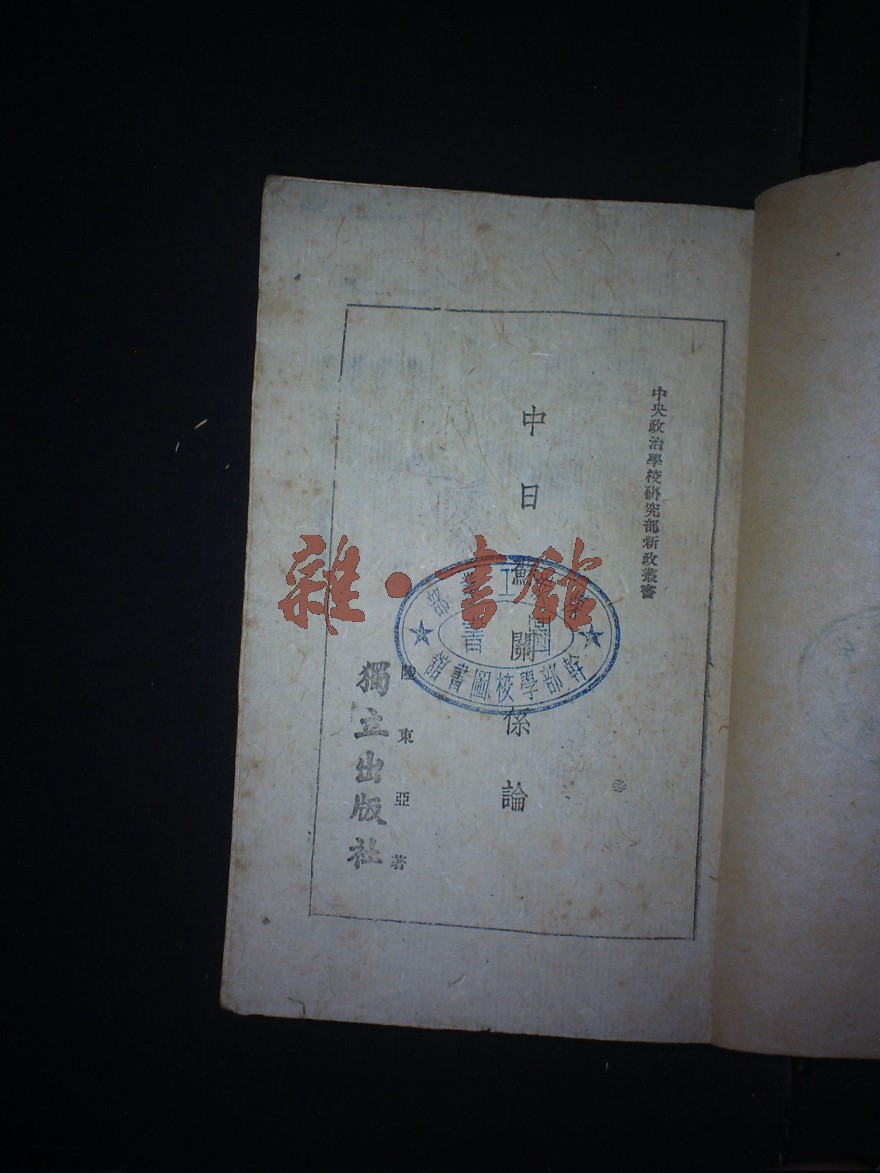 中央政治學校研究部新政叢書
中日蘇關係論
陸東亞著
獨立出版社
雜·書館
幹部學校圖書館